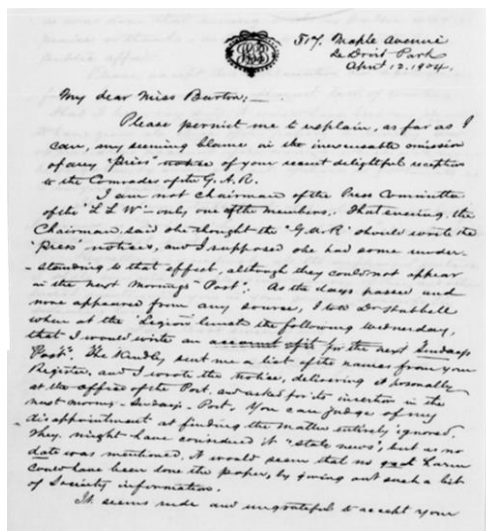 317 Maple Avenue
Le Droit Park
April 12, 1904.
My dear Miss Barton; —
Please permit me to explain, as far as I
can, my seeming blame in the inexcusable omission
of any "press" notice of your recent delightful reception
to the Comrades of the G.A.R.
I am not Chairman of the Press Committee
of the "L L W" — only one of the members. That evening, the
Chairman said she thought the "G.A.R." should write the
"Press" notices, and I supposed she had some under-
-standing to that effect, although they could not appear
in the next morning's "Post". As the days passed and
none appeared from any source, I told Dr Hubbell
when at the "Legion" the following Wednesday,
that I would write an account of it for the next Sunday's
"Post". He kindly sent me a list of the names from your
Register, and I wrote the notice, delivering it personally
at the office of the Post, and asked for its insertion in the
next morning — Sunday's — Post. You can judge of my
disappointment at finding the matter entirely ignored.
They might have considered it "stale news", but as no
date was mentioned, it would seem that no great harm
could have been done the paper, by giving out such a list
of Society information.
It seems rude and ungrateful to accept your